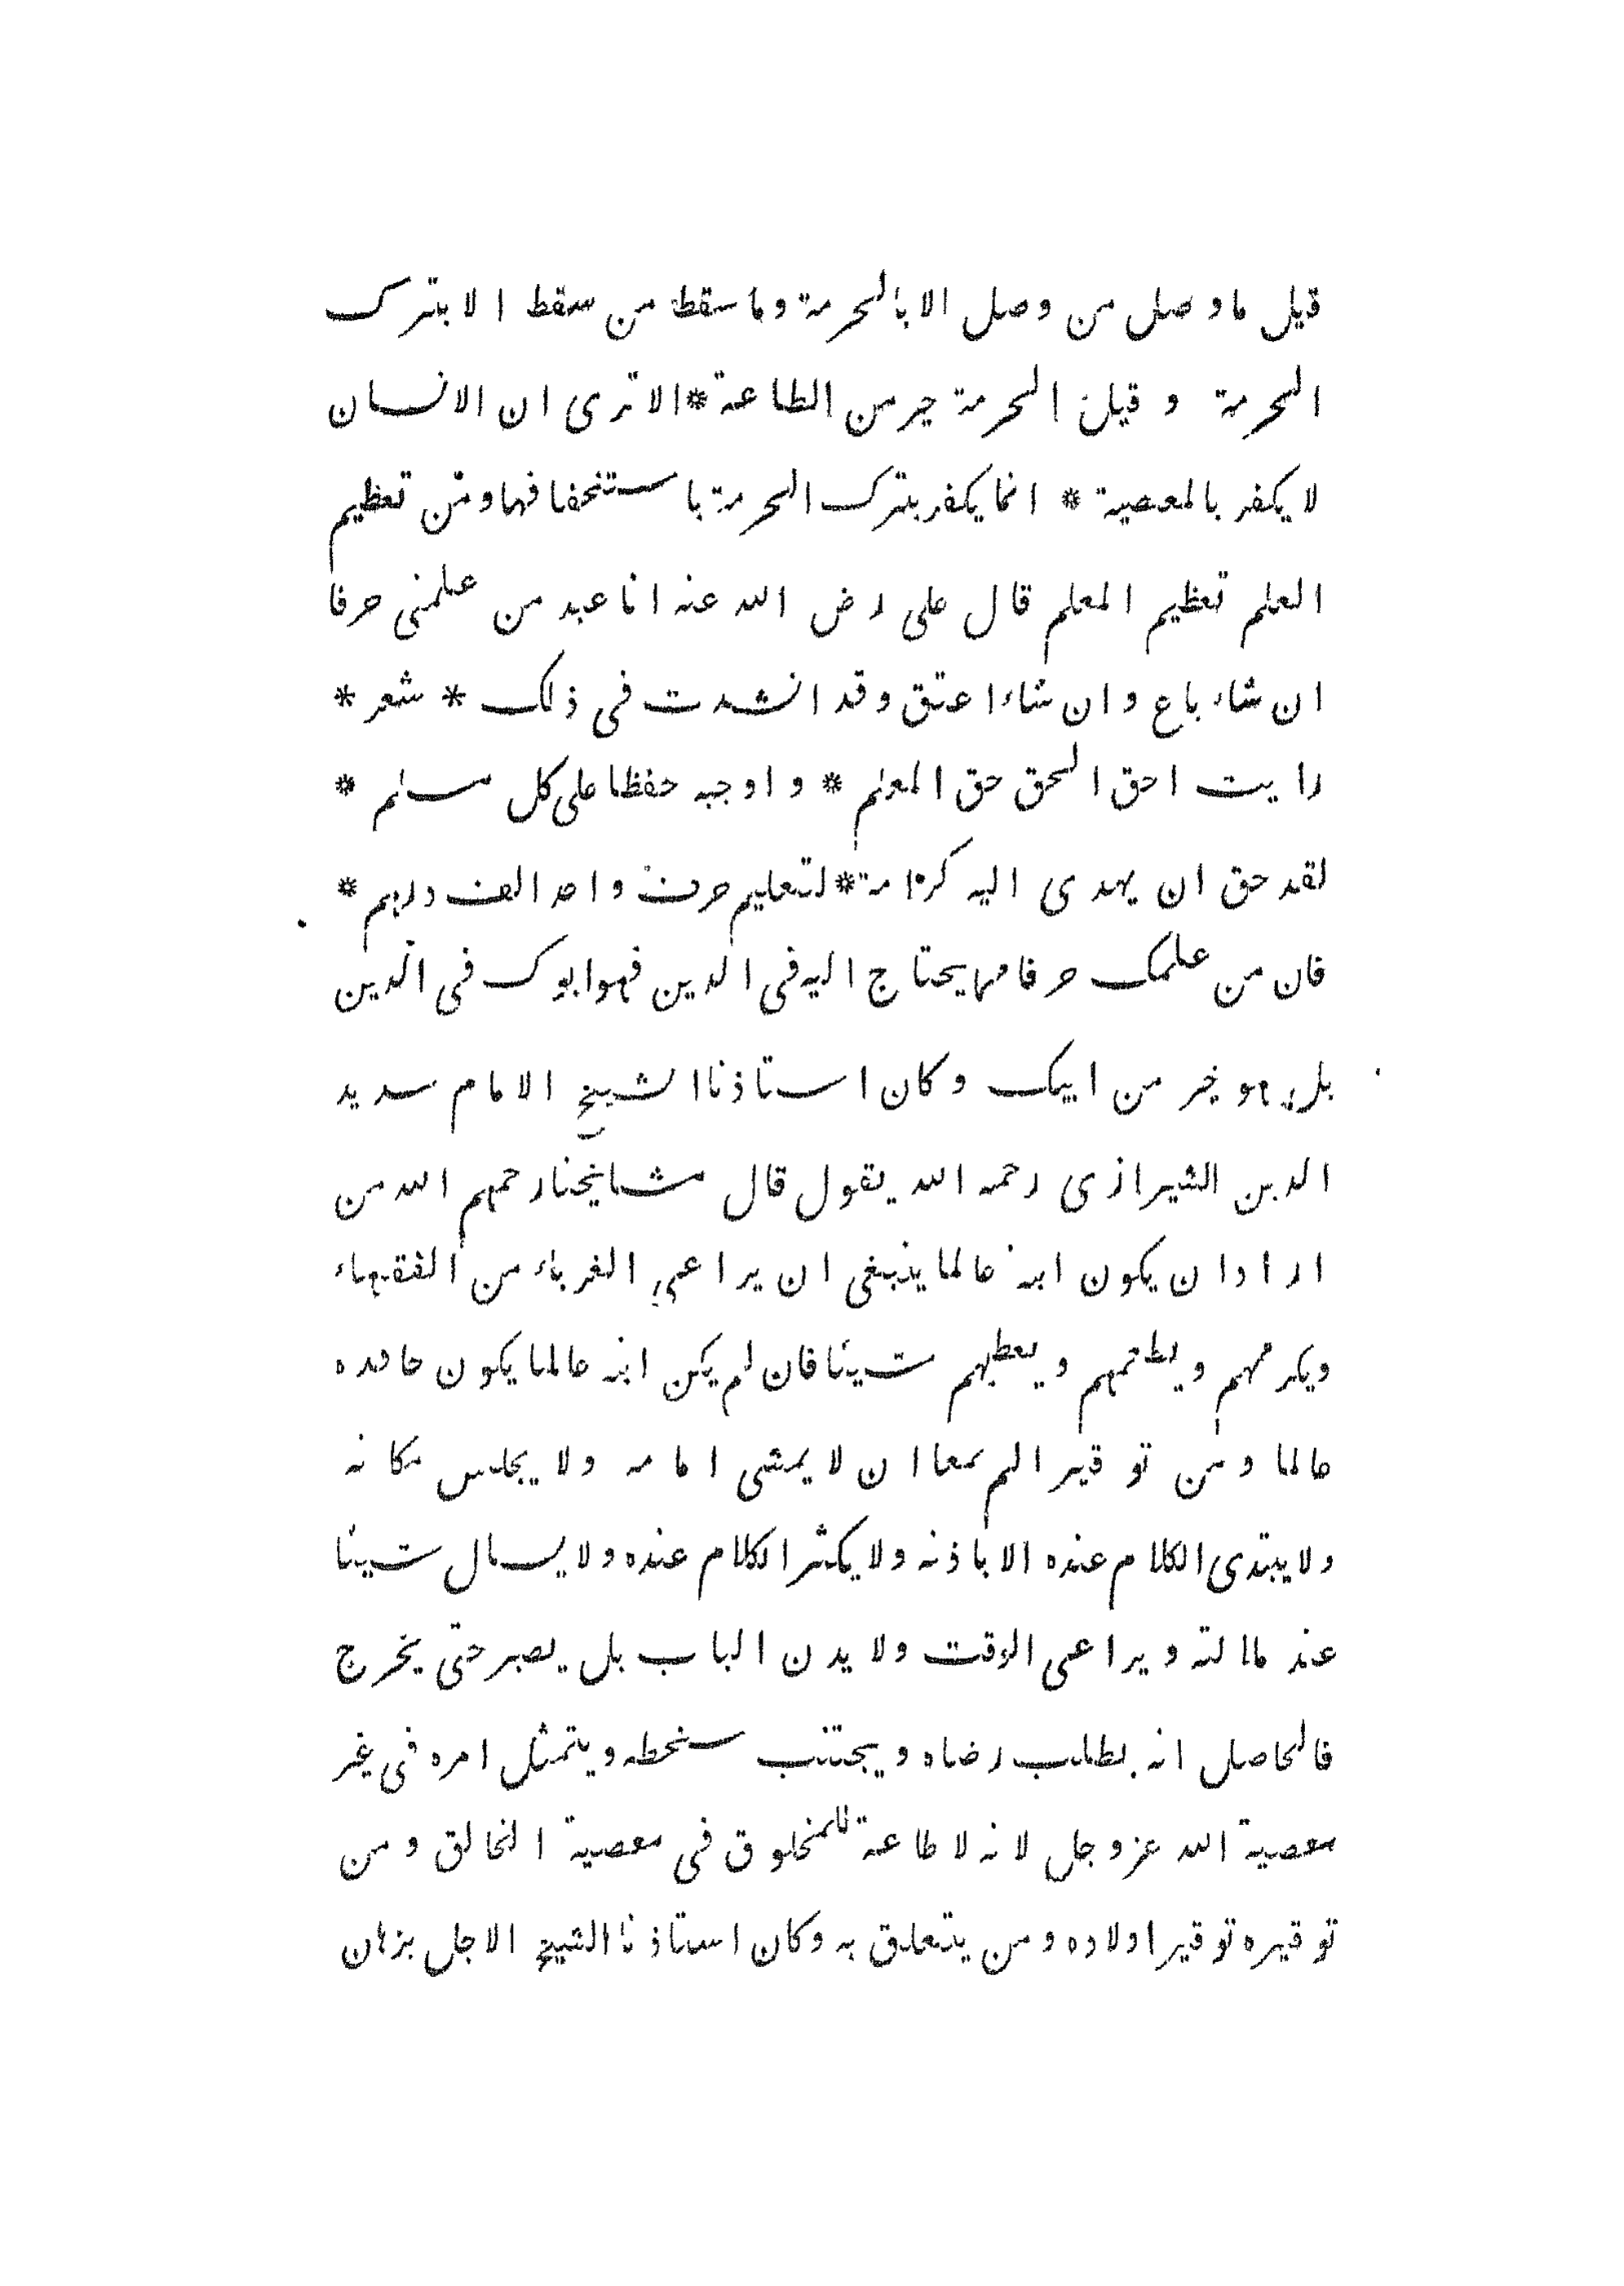 قيل ما وصل من وصل الا بالحرمة وما سقط من سقط الا بترك
الحرمة وقيل الحرمة خير من الطاعة * الا ترى ان الانسان
لا يكفر بالمعصية * انما يكفر بترك الحرمة باستخفافها ومن تعظيم
العلم تعظيم المعلم قال على رض الله عنه انا عبد من علمنى حرفا
ان شاء باع وان شاء اعتق وقد انشدت فى ذلك * شعر *
رايت احق الحق حق المعلم * واوجبه حفظا على كل مسلم *
لقد حق ان يهدى اليه كرامة * لتعليم حرف واحد الف درهم *
فان من علمك حرفا مما يحتاج اليه فى الدين فهو ابوك فى الدين
بل هو خير من ابيك وكان استاذنا الشيخ الامام سديد
الدين الشيرازى رحمه الله يقول قال مشايخنا رحمهم الله من
اراد ان يكون ابنه عالما ينبغى ان يراعى الغرباء من الفقهاء
ويكرمهم ويطعمهم ويعطيهم شيئا فان لم يكن ابنه عالما يكون حافده
عالما ومن توقير المعلم ان لا يمشى امامه ولا يجلس مكانه
ولا يبتدى الكلام عنده الا باذنه ولا يكثر الكلام عنده ولا يسال شيئا
عند ملالته ويراعى الوقت ولا يدن الباب بل يصبر حتى يخرج
فالحاصل انه يطلب رضاه ويجتنب سخطه ويتمثل امره فى غير
معصية الله عز وجل لانه لا طاعة للمخلوق فى معصية الخالق ومن
توقيره توقير اولاده ومن يتعلق به وكان استاذنا الشيخ الاجل برهان